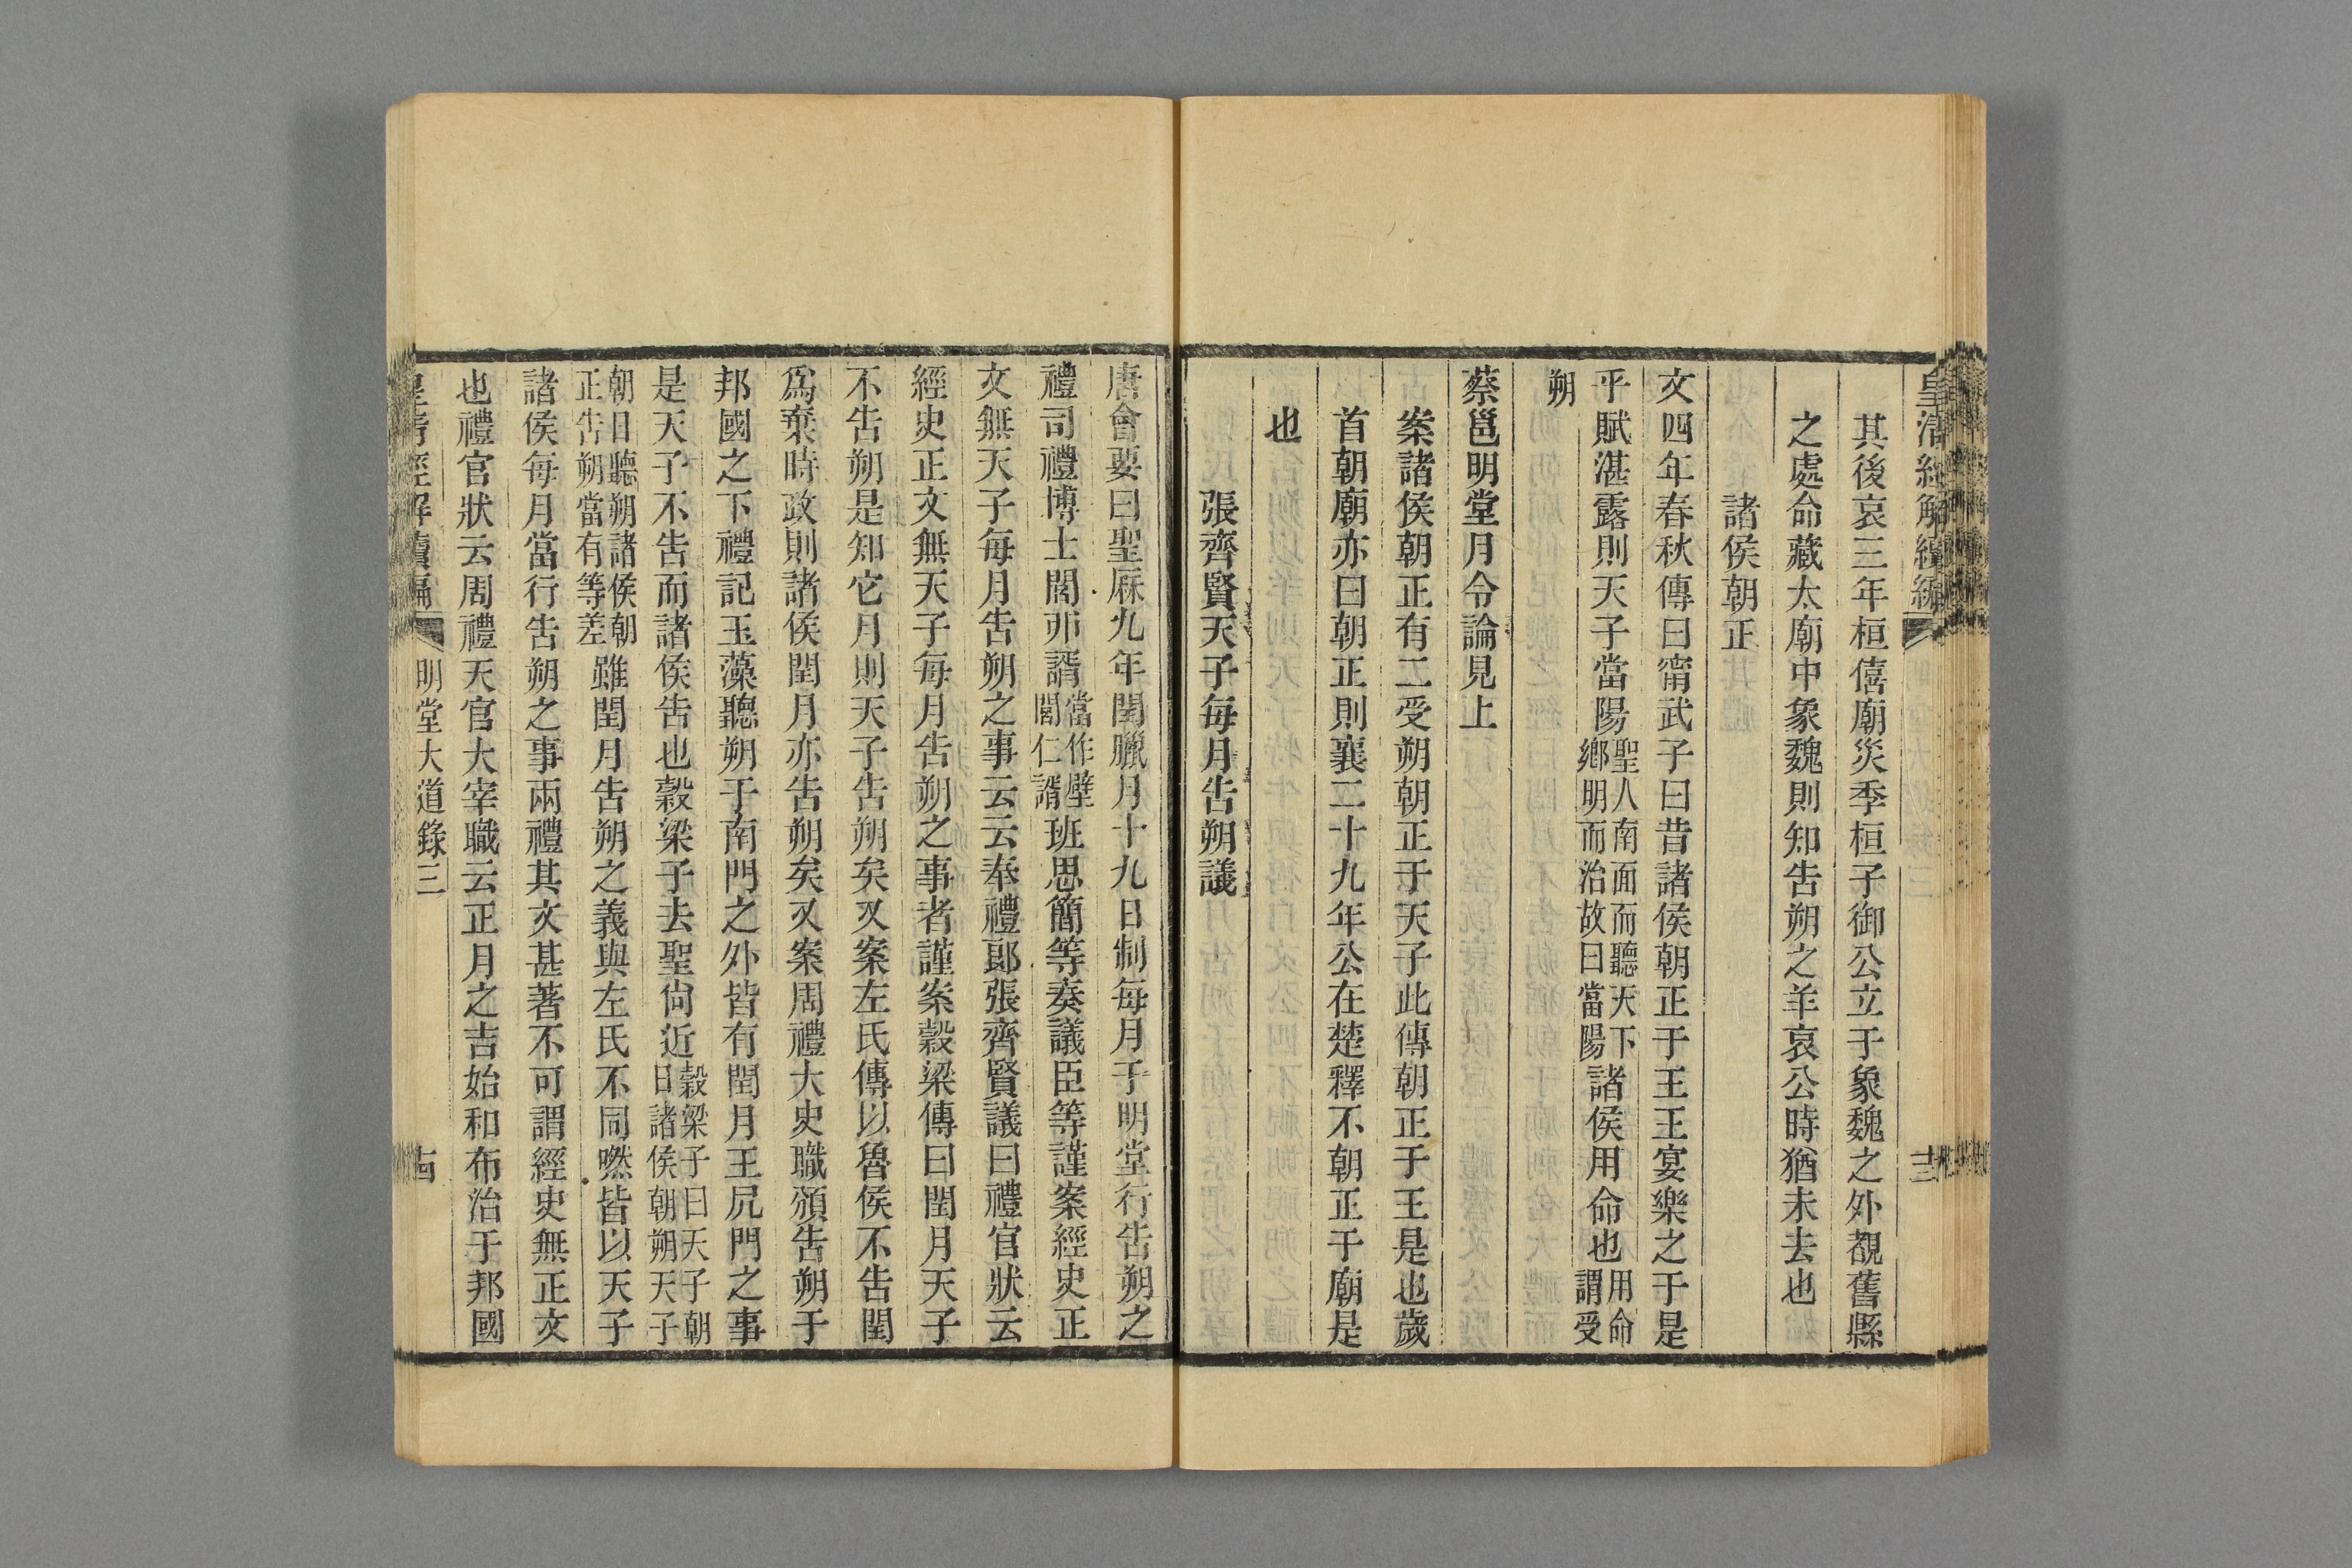 皇清經解續編
十三
其後哀三年桓僖廟災季桓子御公立于象魏之外覩舊縣
之處命藏太廟中象魏則知告朔之羊哀公時猶未去也
諸侯朝正
文四年春秋傳曰甯武子曰昔諸侯朝正于王王宴樂之于是
乎賦湛露則天子當陽聖人南面而聽天下鄉明而治故曰當陽諸侯用命也用命謂受
朔
蔡邕明堂月令論見上
案諸侯朝正有二受朔朝正于天子此傳朝正于王是也歲
首朝廟亦曰朝正則襄二十九年公在楚釋不朝正于廟是
也
張齊賢天子每月告朔議
唐會要曰聖厤九年閏臘月十九日制每月于明堂行告朔之
禮司禮博士閭丣諝當作辟閭仁諝班思簡等奏議臣等謹案經史正
文無天子每月告朔之事云云奉禮郞張齊賢議曰禮官狀云
經史正文無天子每月告朔之事者謹案穀梁傳曰閏月天子
不告朔是知它月則天子告朔矣又案左氏傳以魯侯不告閏
爲棄時政則諸侯閏月亦告朔矣又案周禮大史職頒告朔于
邦國之下禮記玉藻聽朔于南門之外皆有閏月王尻門之事
是天子不告而諸侯告也穀梁子去聖尙近穀梁子曰天子朝日諸侯朝朔天子
朝日聽朔諸侯朝正告朔當有等差雖閏月告朔之義與左氏不同嘫皆以天子
諸侯每月當行告朔之事兩禮其文甚著不可謂經史無正文
也禮官狀云周禮天官大宰職云正月之吉始和布治于邦國
皇清經解續編
明堂大道錄三
十四